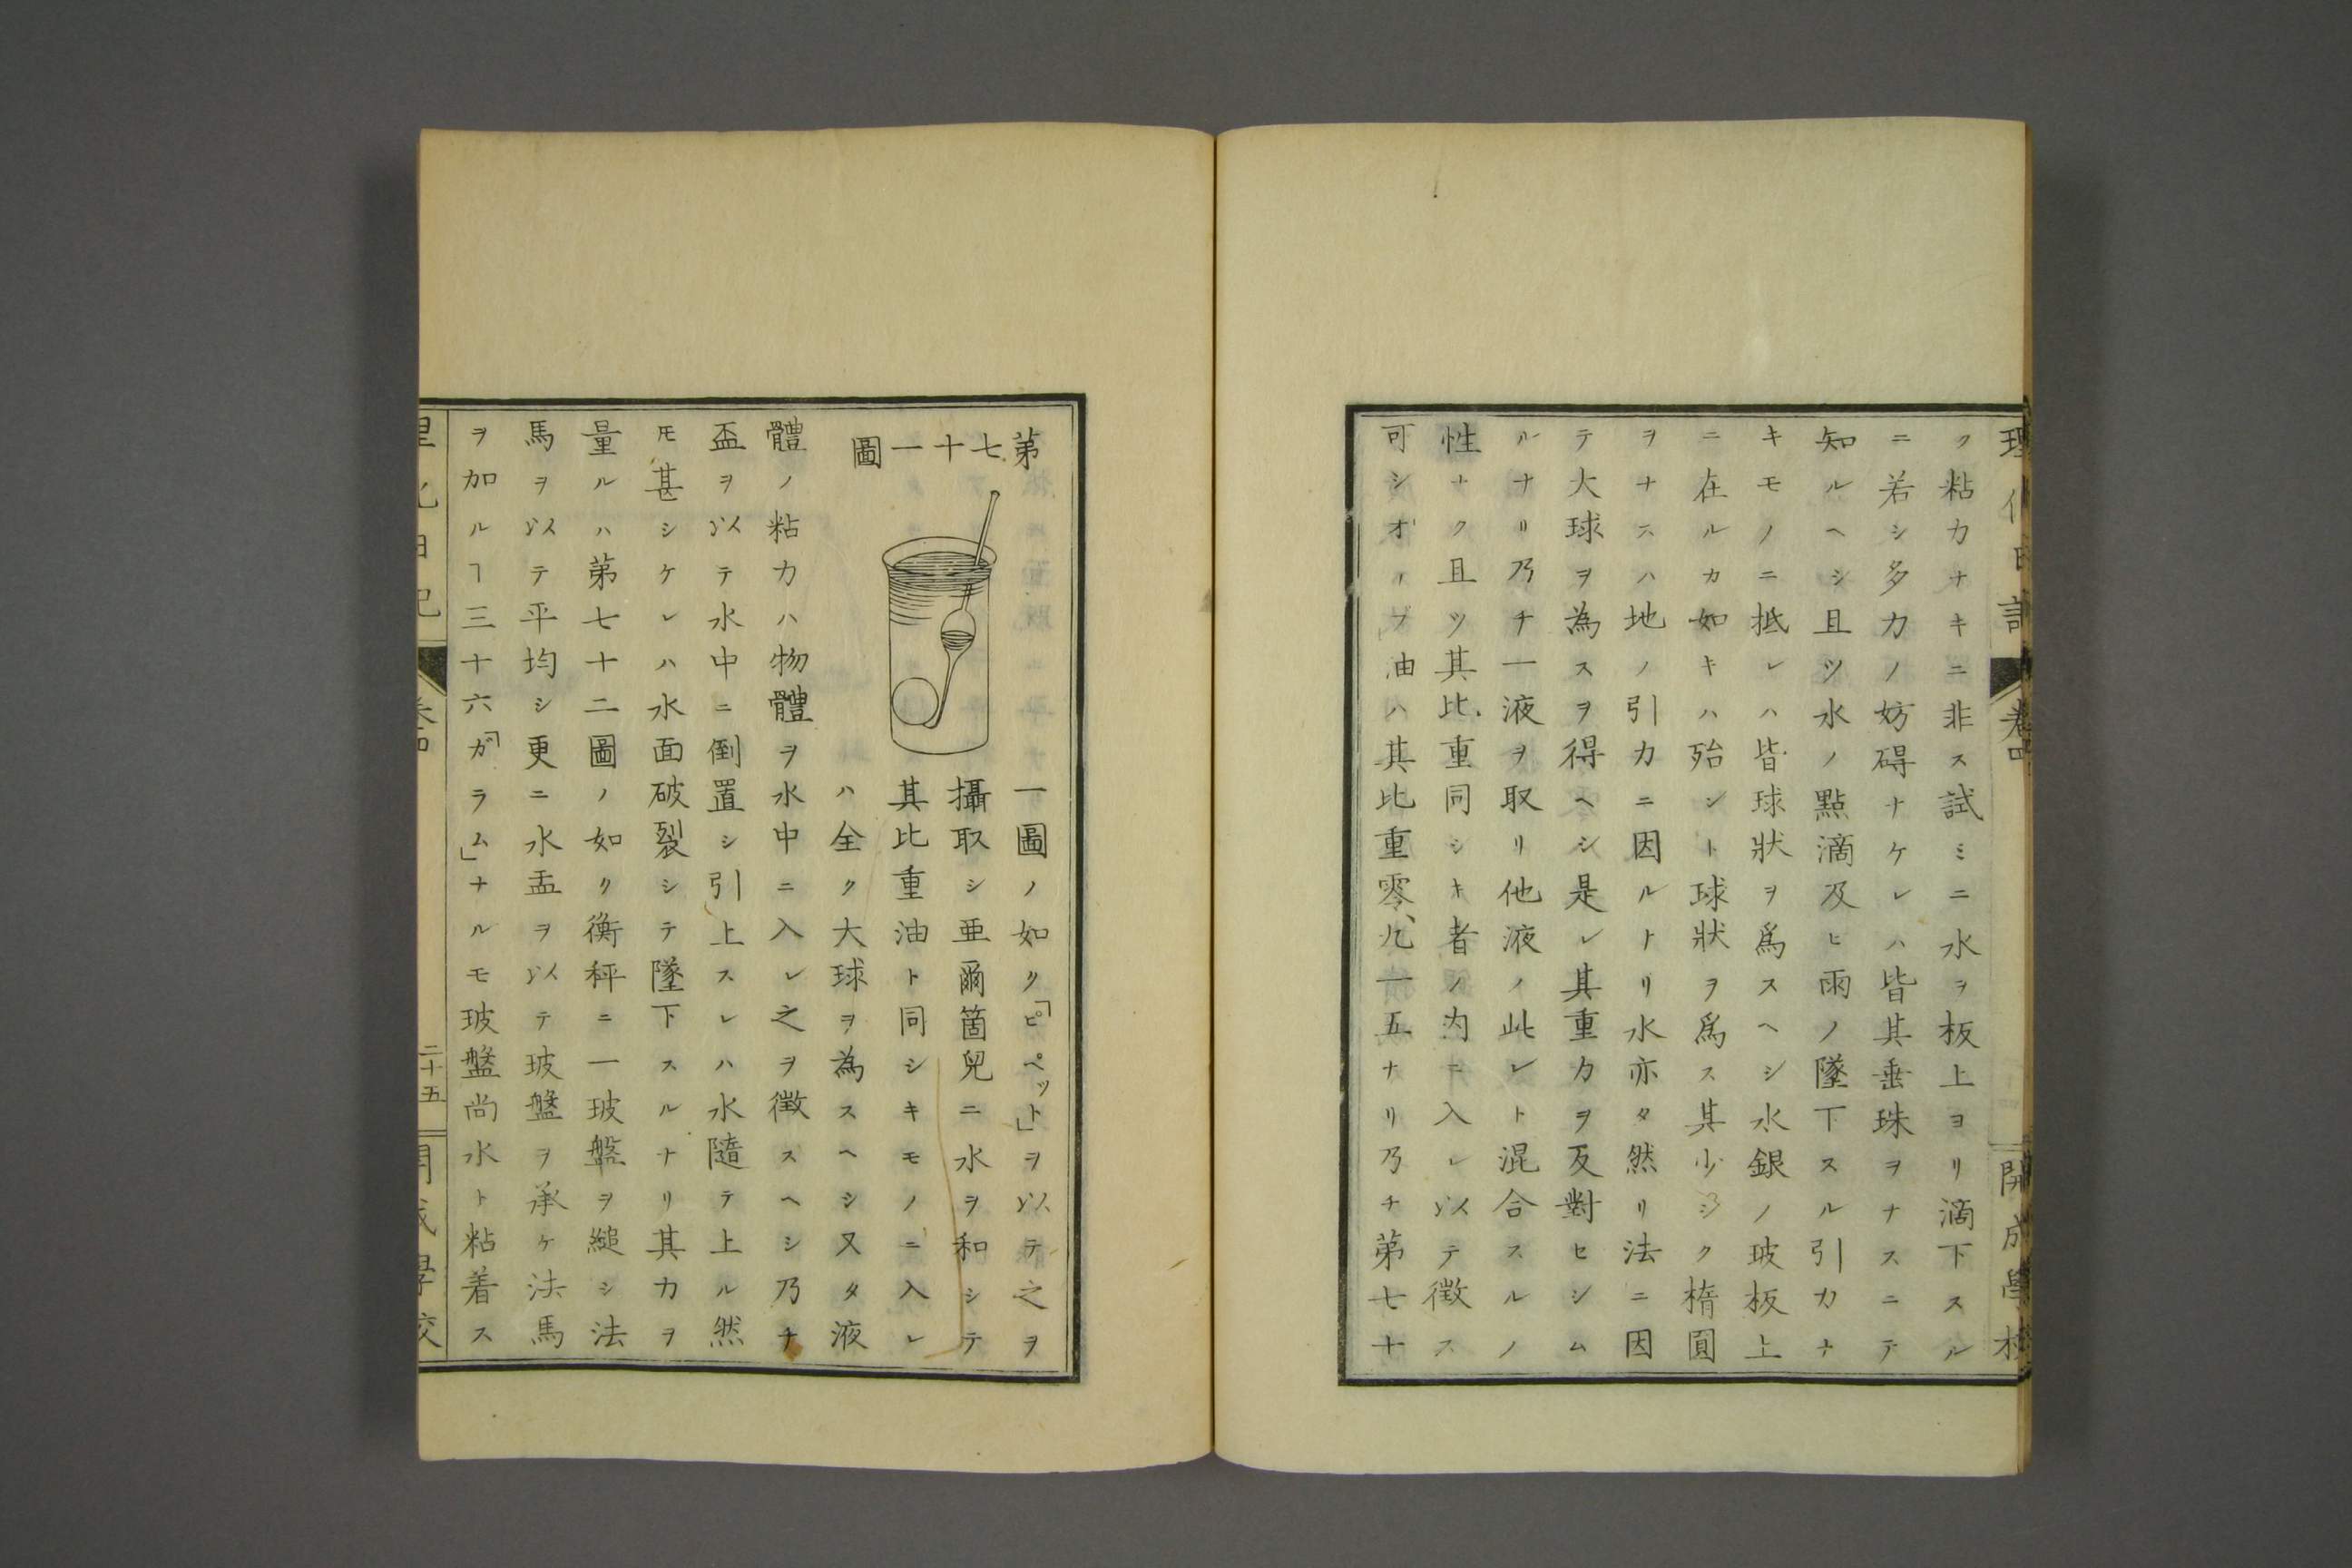 理化日記
卷四
開成學校
ク粘力ナキニ非ス試ミニ水ヲ板上ヨリ滴下スル
ニ若シ多力ノ妨碍ナケレハ皆其垂珠ヲナスニテ
知ルヘシ且ツ水ノ點滴及ヒ雨ノ墜下スル引力ナ
キモノニ抵レハ皆球狀ヲ爲スヘシ水銀ノ玻板上
ニ在ルカ如キハ殆ント球狀ヲ爲ス其少シク楕圓
ヲナスハ地ノ引力ニ因ルナリ水亦タ然リ法ニ因
テ大球ヲ為スヲ得ヘシ是レ其重力ヲ反對セシム
ルナリ乃チ一液ヲ取リ他液ノ此レト混合スルノ
性ナク且ツ其比重同シキ者ノ内ニ入レ以テ徴ス
可シオーブ油ハ其比重零、九一五ナリ乃チ第七十
第七十一圖
一圖ノ如ク「ピペット」ヲ以テ之ヲ
攝取シ亜爾箇兒ニ水ヲ和シテ
其比重油ト同シキモノニ入レ
ハ全ク大球ヲ為スヘシ又タ液
體ノ粘力ハ物體ヲ水中ニ入レ之ヲ徴スヘシ乃チ
盃ヲ以テ水中ニ倒置シ引上スレハ水隨テ上ル然
モ甚シケレハ水面破裂シテ墜下スルナリ其力ヲ
量ルハ第七十二圖ノ如ク衡秤ニ一玻盤ヲ縋シ法
馬ヲ以テ平均シ更ニ水盂ヲ以テ玻盤ヲ承ケ法馬
ヲ加ルヿ三十六「ガラム」ナルモ玻盤尚水ト粘着ス
理化日記
卷四
二十五
開成學校